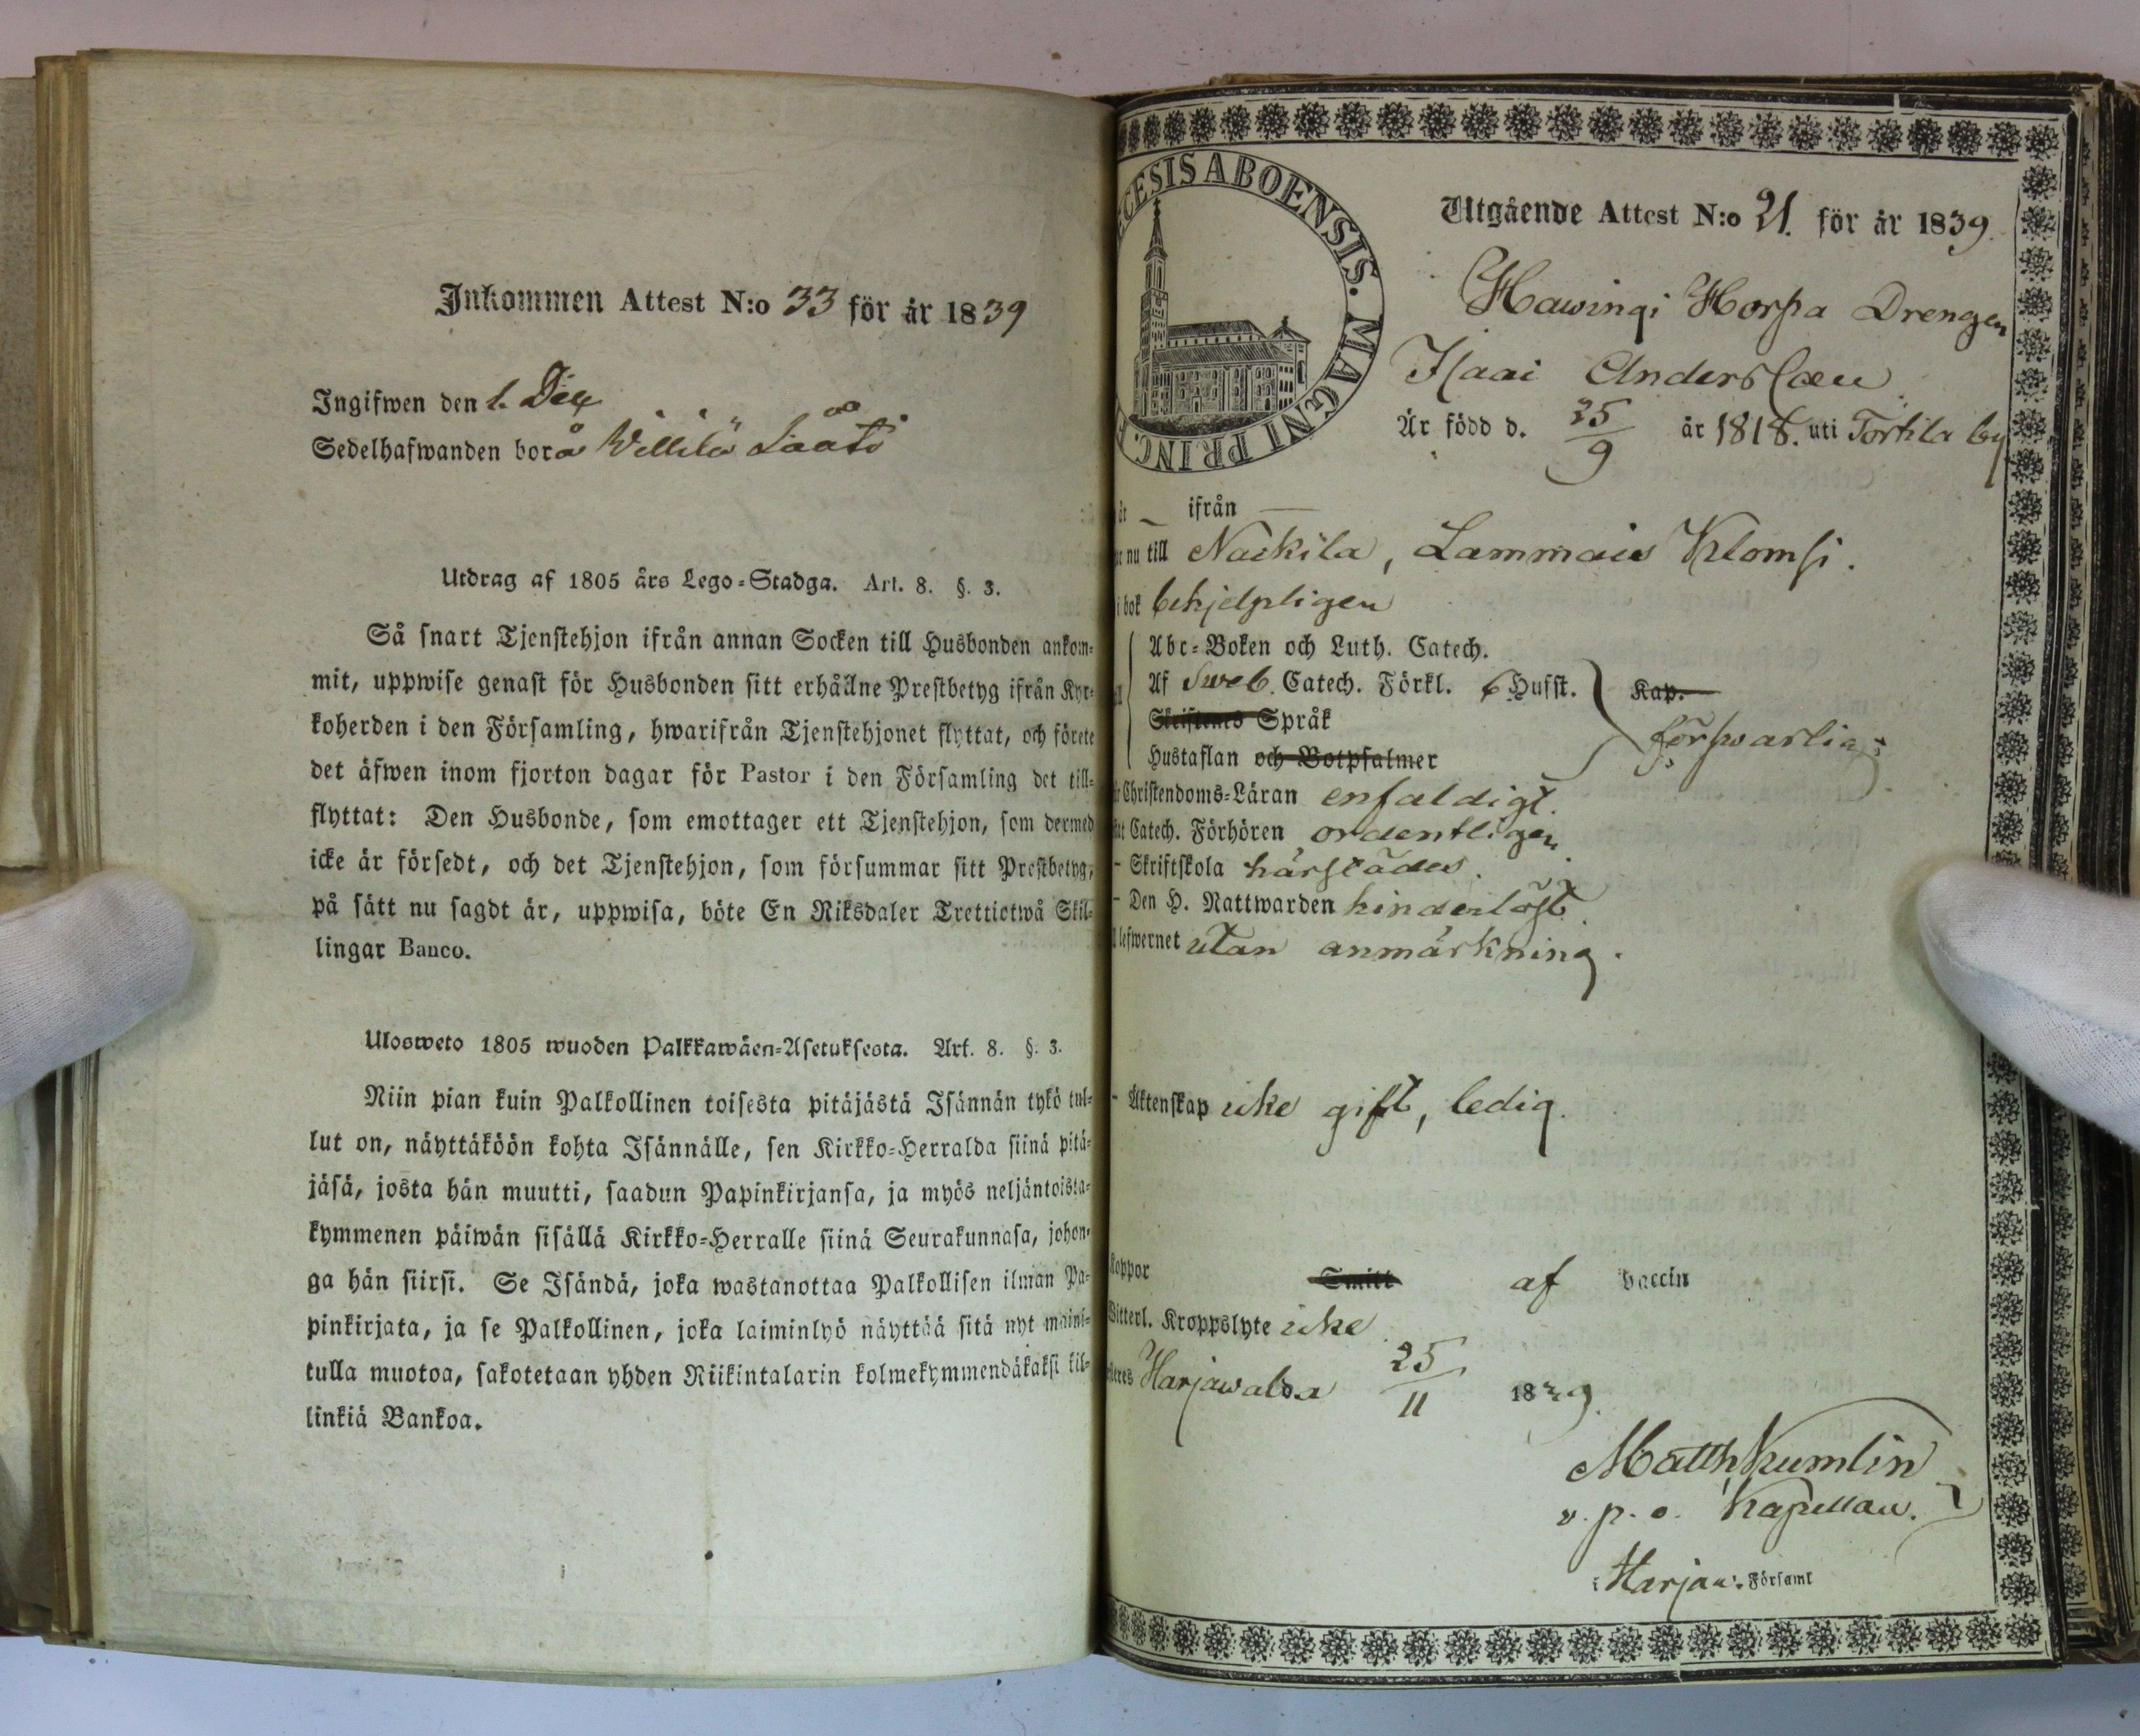 Inkommen Attest N:o 33 för år 1839
Ingifwen den 1. Dec
Sedelhafwanden bor å Willilä
Utdrag af 1805 års Lego-Stadga. Art. 8. §. 3.
Så snart Tjenstehjon ifrån annan Socken till Husbonden ankom-
mit, uppwise genast för Husbonden sitt erhållne Prestbetyg ifrån Kyr-
koherden i den Församling, hwarifrån Tjenstehjonet flyttat, och förete
det äfwen inom fjorton dagar för Pastor i den Församling det till-
flyttat: Den Husbonde, som emottager ett Tjenstehjon, som dermed
icke är försedt, och det Tjenstehjon, som försummar sitt Prestbetyg,
på sätt nu sagdt är, uppwisa, böte En Riksdaler Trettiotwå Skil-
lingar Banco.
Ulosweto 1805 wuoden Palkkawäen-Asetuksesta. Art. 8. §. 3.
Niin pian kuin Palkollinen toisesta pitäjästä Isännän tykö tul-
lut on, näyttäköön kohta Isännälle, sen Kirkko-Herralda siinä pitä-
jäsä, josta hän muutti, saadun Papinkirjansa, ja myös neljäntoista-
kymmenen päiwän sisällä Kirkko-Herralle siinä Seurakunnasa, johon-
ga hän siirsi. Se Isändä, joka wastanottaa Palkollisen ilman Pa-
pinkirjata, ja se Palkollinen, joka laiminlyö näyttää sitä nyt maini-
tulla muotoa, sakotetaan yhden Riikintalarin kolmekymmendäkaksi kil-
linkiä Bankoa.
CESIS ABOENSIS. MAGNI PRINC. F
Utgående Attest N:o 21. för år 1839.
Hawingi Horpa Drengen
Isaai Andersson
Är född d. 25/9 år 1818. uti Torttila by
ifrån
nu till Nackila, Lammais Klomsi.
i bok behjelpligen
Abc-Boken och Luth. Catech.
Af Sweb. Catech. Förkl. 6 Husst. Kap.
Skriftenes Språk
försvarlig
Hustaflan och Botpsalmer
Christendoms-Läran enfaldigt.
Catech. Förhören ordentligen
- Skriftskola härstädes.
- Den H. Nattwarden hinderlöst.
lefwernet utan anmärkning.
- Äktenskap icke gift, ledig.
koppor Smitt af vaccin
Witterl. Kroppslyte icke
Harjawalda 25/11 1839.
Matth Kumlin
v. p. o. Kapellan.
i Harjaw. Församl